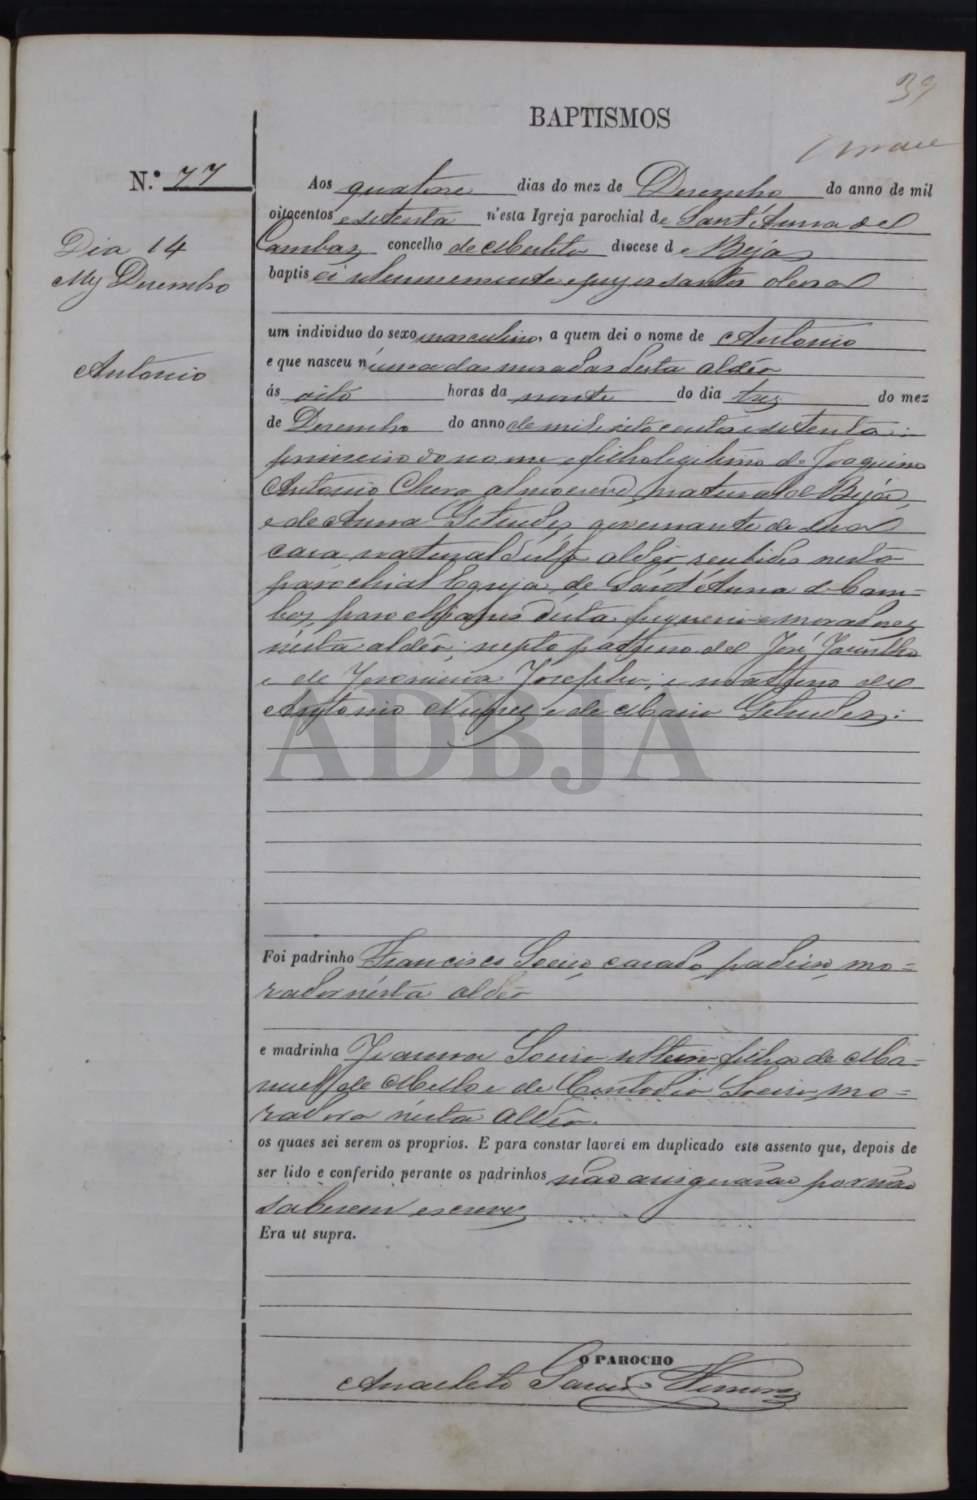 39
BAPTISMOS
N.º 77
Aos quatorse dias do mez de Desembro do anno de mil
oitocentos e setenta n'esta Igreja parochial de Sant'Anna de
Cambas concelho de Mertola diocese de Beja
baptisei solemnemente e puz os santos oleos
Dia 14
Mez Desembro
Antonio
um individuo do sexo masculino, a quem dei o nome de Antonio
e que nasceu n'uma das moradas desta aldêa
ás oito horas da noute do dia tres do mez
de Desembro do anno de mil oitocentos e setenta
primeiro do nome e filho legitimo de Joaquim
Antonio almocreve natural de Beja
e de Anna Getrudes governante de sua
casa natural d'esta aldêa recebidos nesta
parochial Egreja de Sant'Anna de Cam-
bas parochianos desta freguesia e moradores
nesta aldêa; nepto patterno de José Jacintho
e de Josepha; e matterno de
Antonio e de Maria Getrudes.
ADBJA
Foi padrinho Francisco Soeiro casado, padeiro, mo-
rador nesta aldêa
e madrinha Joanna Soeiro solteira filha de Ma-
nuel de Mello e de Custodia Soeiro, mo-
radora nesta aldêa.
os quaes sei serem os proprios. E para constar lavrei em duplicado este assento que, depois de
ser lido e conferido perante os padrinhos não assignarão por não
saberem escrever
Era ut supra.
O PAROCHO
Anacleto